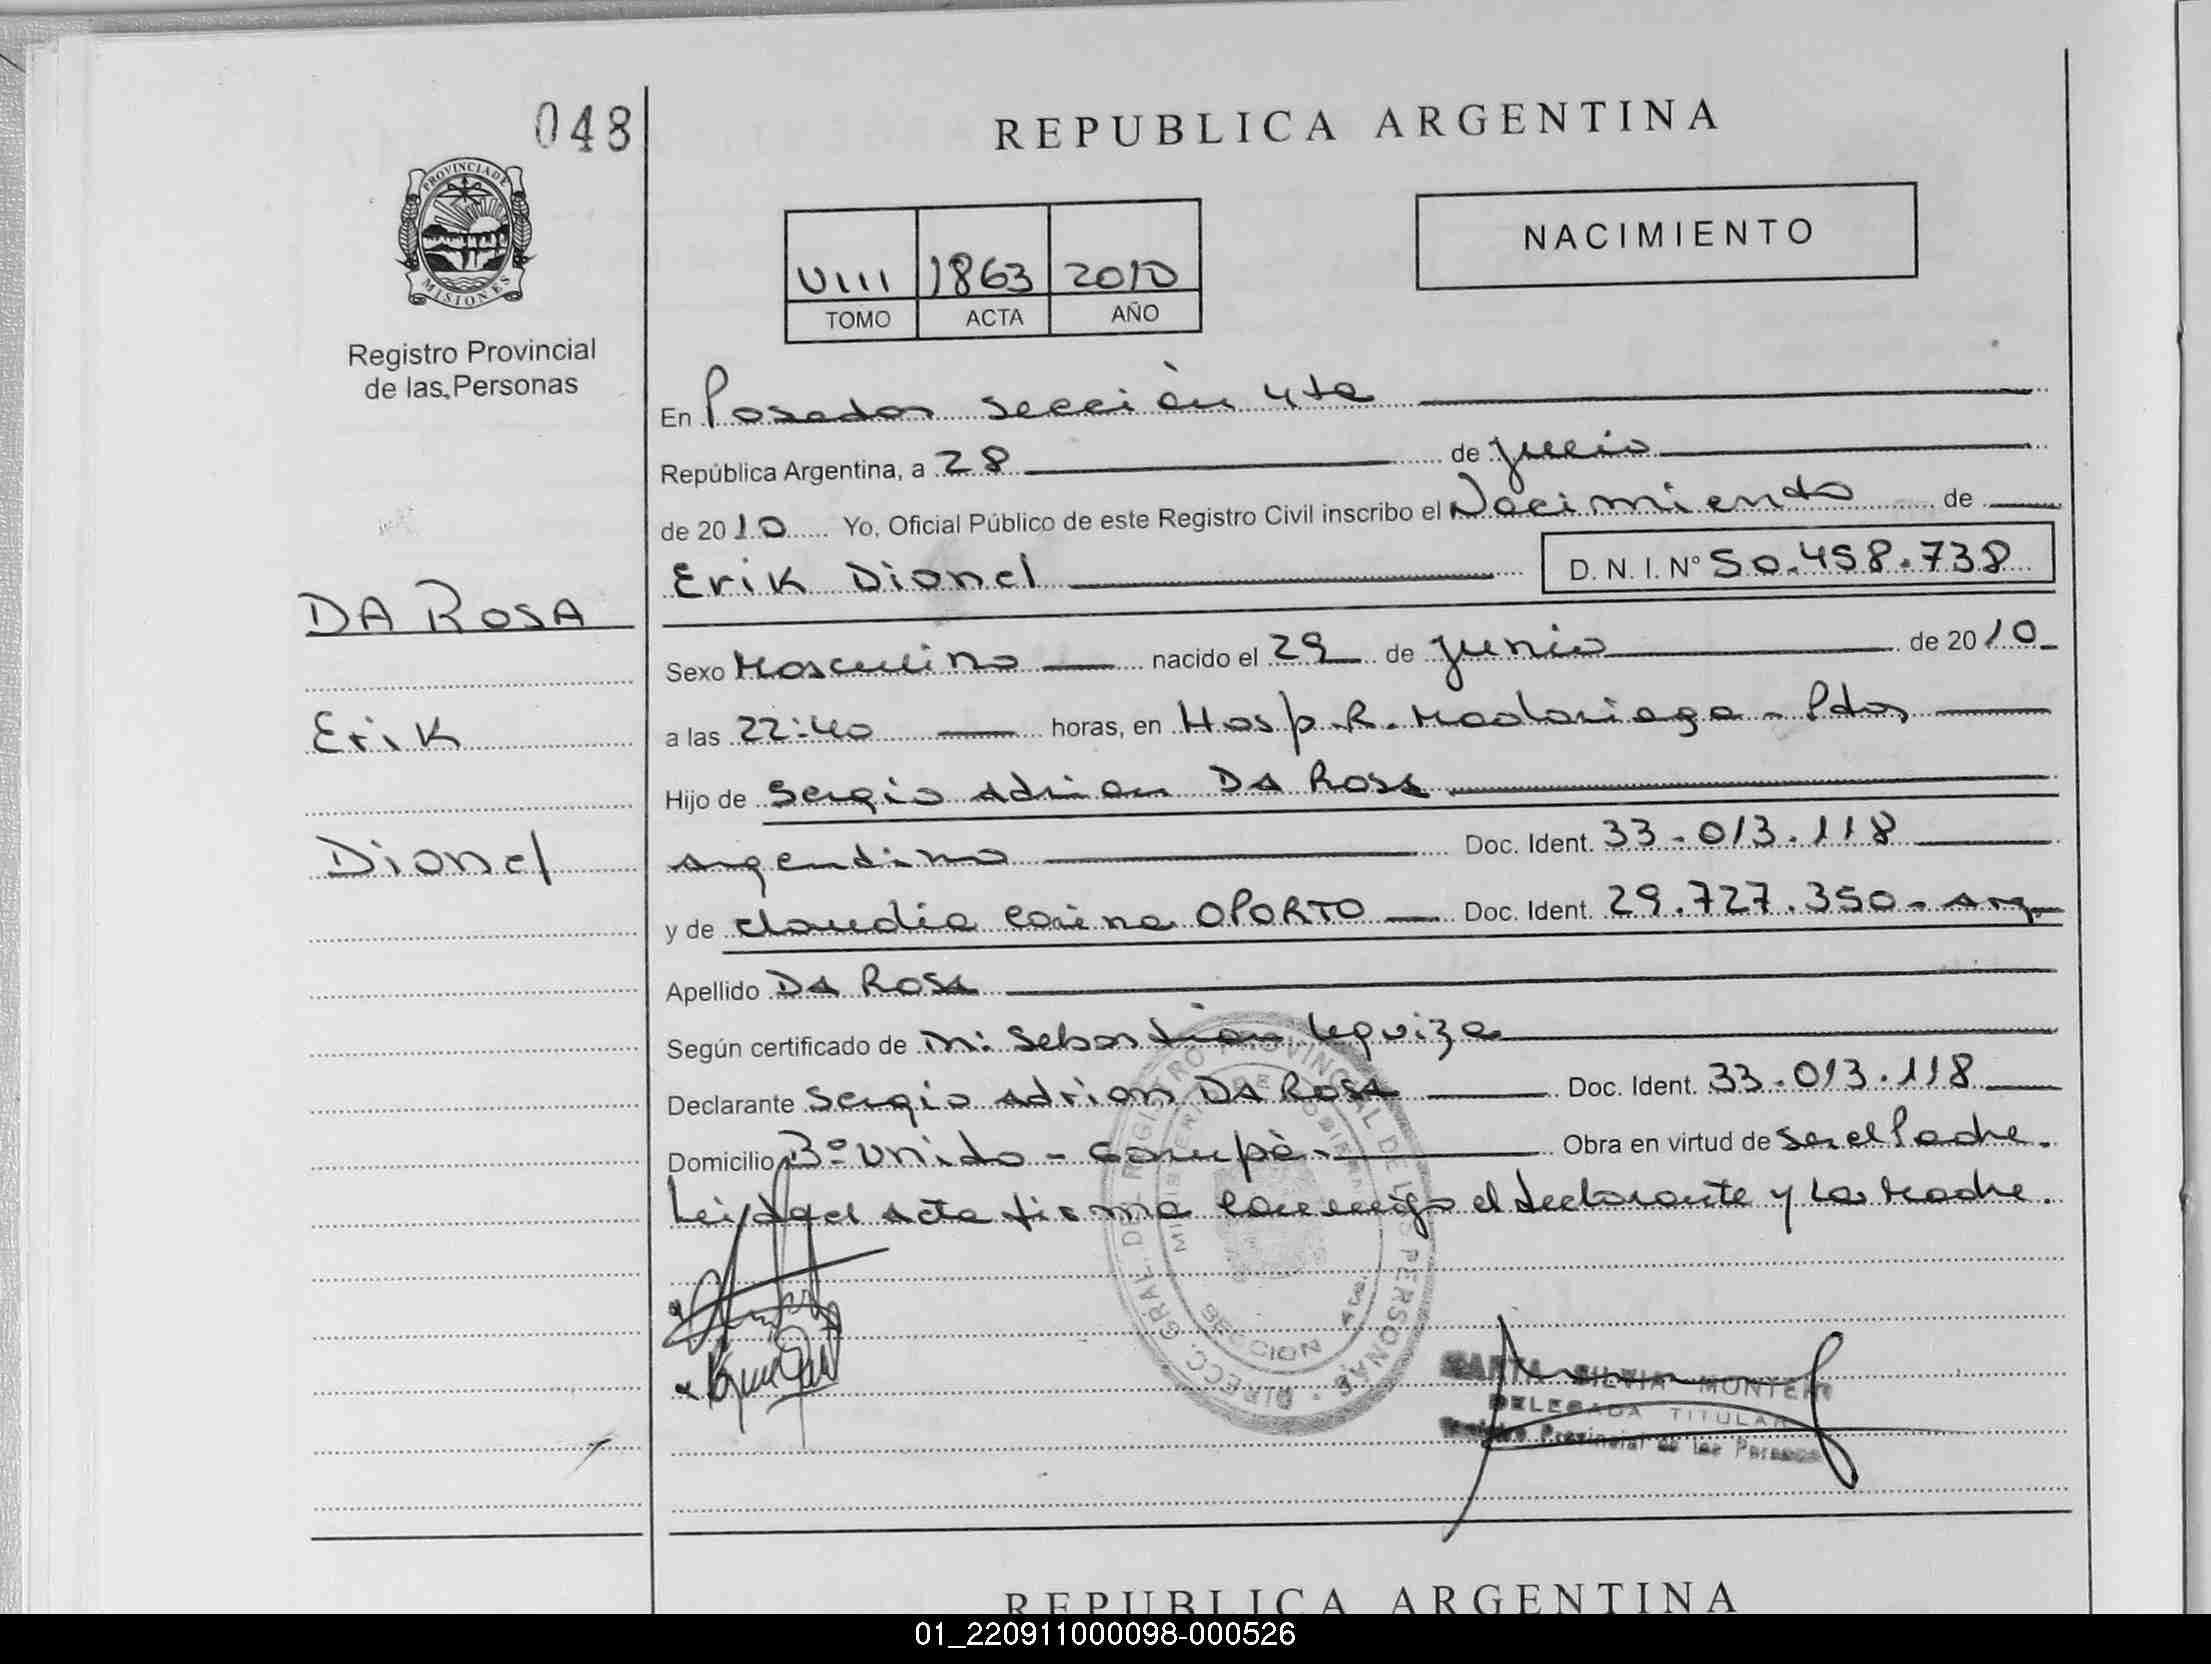 048
REPUBLICA ARGENTINA
PROVINCIA DE
MISIONES
Registro Provincial
de las Personas
NACIMIENTO
VIII 1863 2010
TOMO ACTA AÑO
En Posadas sección 4ta
República Argentina, a 28 de julio
de 2010 Yo, Oficial Público de este Registro Civil inscribo el Nacimiento de
Erik Dionel D. N. I. Nº 50.458.738
DA ROSA
Erik
Dionel
Sexo Masculino nacido el 29 de junio de 2010
a las 22:40 horas, en Hosp. R. Madariaga - Pdas
Hijo de Sergio Adrian DA ROSA
Argentino Doc. Ident. 33.013.118
y de Claudia Carina OPORTO Doc. Ident. 29.727.350 - Arg.
Apellido DA ROSA
Según certificado de Sebastian
Declarante Sergio Adrian DA ROSA Doc. Ident. 33.013.118
Domicilio Bº Unido - Garupá. Obra en virtud de ser el Padre.
Leida el Acta firma conmigo el declarante y La Madre.
DIRECC. GRAL. DEL REGISTRO PROVINCIAL DE LAS PERSONAS
MINISTERIO DE GOBIERNO
SECCION 4ta.
SILVIA
DELEGADA TITULAR
Registro Provincial de las Personas
REPUBLICA ARGENTINA
01_220911000098-000526